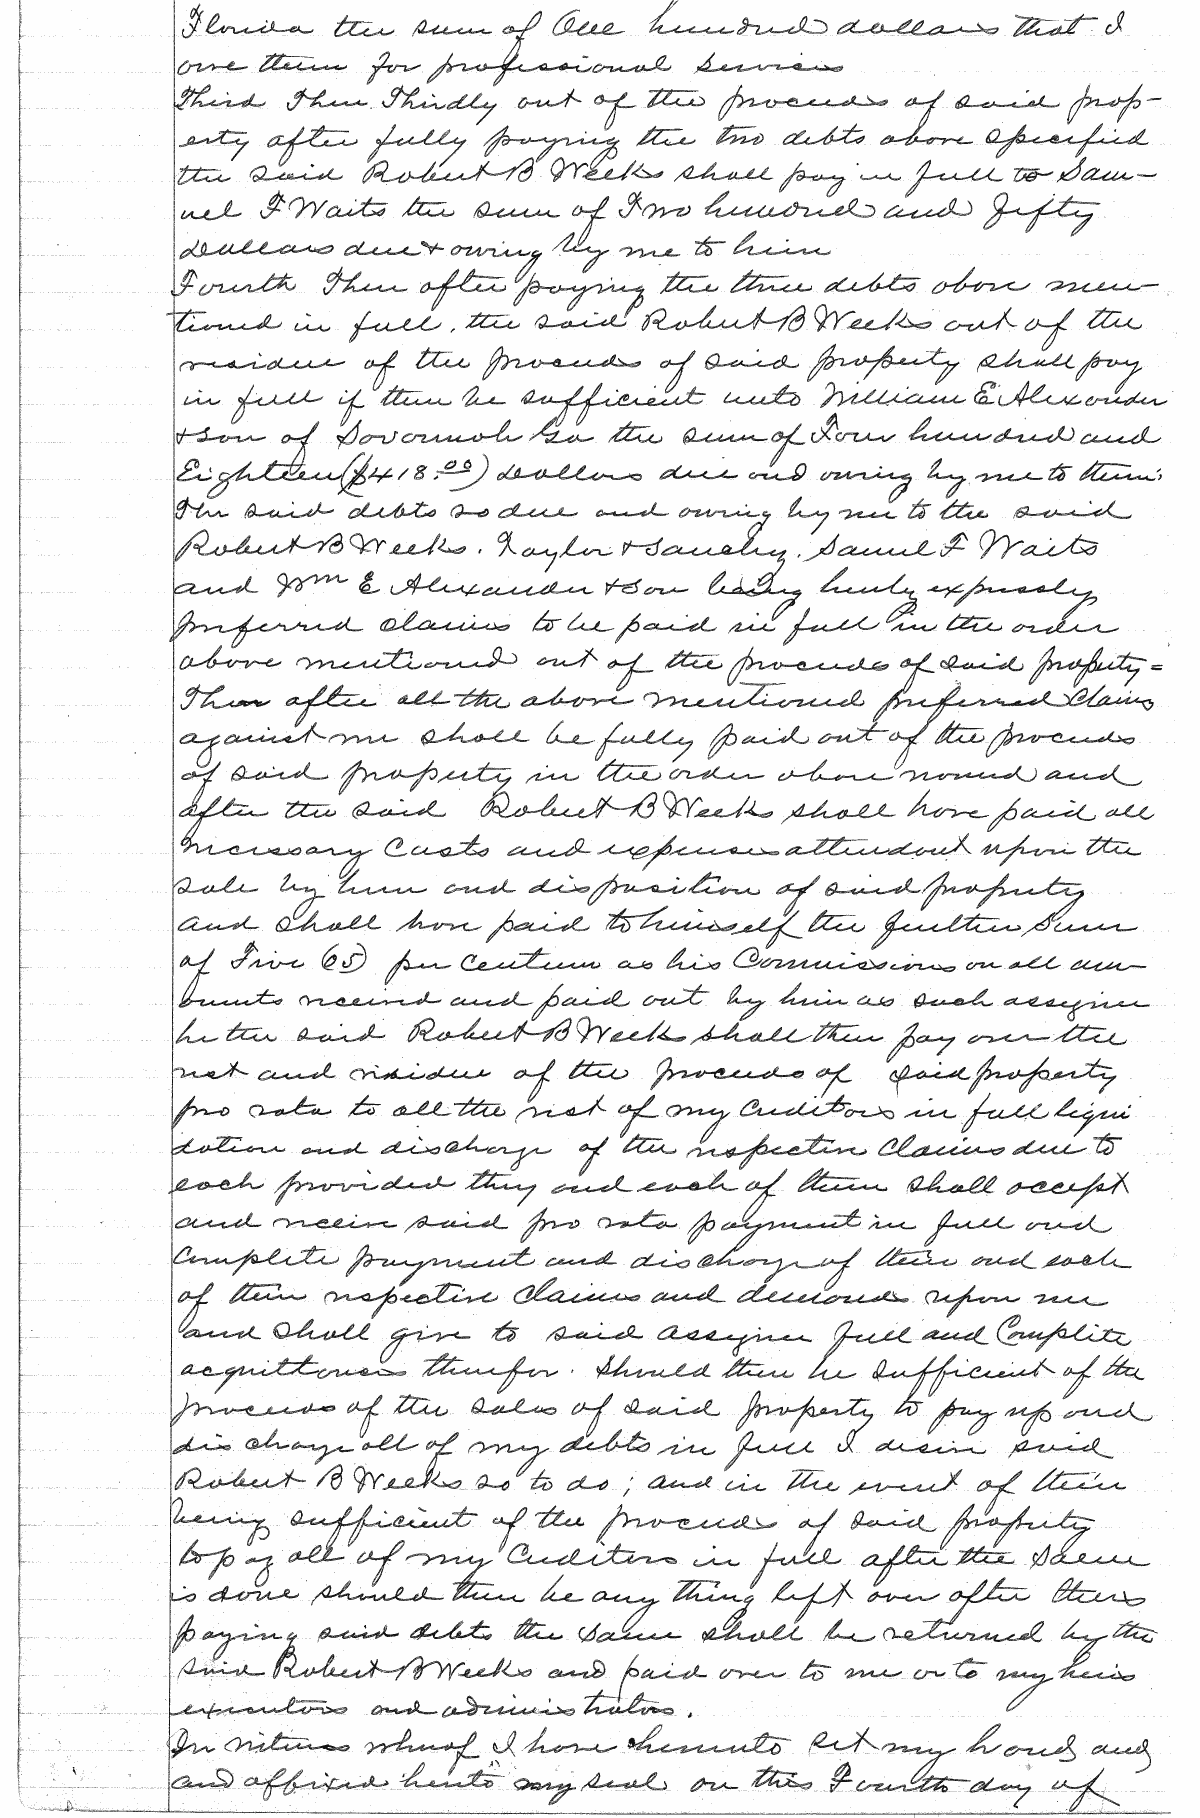 Florida the sum of One hundred dollars that I
owe them for professional services
Third Then Thirdly out of the proceeds of said prop-
erty after fully paying the two debts above specified
the said Robert B Weeks shall pay in full to Sam-
uel F Waits the sum of Two hundred and fifty
Dollars due & owing by me to him
Fourth Then after paying the three debts above men-
tioned in full, the said Robert B Weeks out of the
residue of the proceeds of said property shall pay
in full if there be sufficient unto William E Alexander
& son of Savannah Ga the sum of Four hundred and
Eighteen ($418.00) Dollars due and owing by me to them:
The said debts so due and owing by me to the said
Robert B Weeks, Taylor & Sanchez, Samuel F Waits
and Wm E Alexander & Son being hereby expressly
preferred claims to be paid in full in the order
above mentioned out of the proceeds of said property=
Then after all the above mentioned preferred claims
against me shall be fully paid out of the proceeds
of said property in the order above named and
after the said Robert B Weeks shall have paid all
necessary costs and expenses attendant upon the
sale by him and disposition of said property
and shall have paid to himself the further sum
of Five (5) per centum as his Commissions on all am-
ounts received and paid out by him as such assignee
he the said Robert B Weeks shall then pay over the
rest and residue of the proceeds of said property
pro rata to all the rest of my creditors in full liqui
dation and discharge of the respective claims due to
each provided they and each of them shall accept
and receive said pro rata payment in full and
Complete payment and discharge of their and each
of their respective claims and demands upon me
and shall give to said assignee full and Complete
acquittances therefor. Should there be sufficient of the
proceeds of the sales of said property to pay up and
discharge all of my debts in full I desire said
Robert B Weeks so to do; and in the event of their
being sufficient of the proceeds of said property
to pay all of my creditors in full after the same
is done should there be any thing left over after thus
paying said debts the same shall be returned by the
said Robert B Weeks and paid over to me or to my heirs
executors and administrators.
In witness whereof I have hereunto set my hand and
and affixed hereto my seal on this Fourth day of